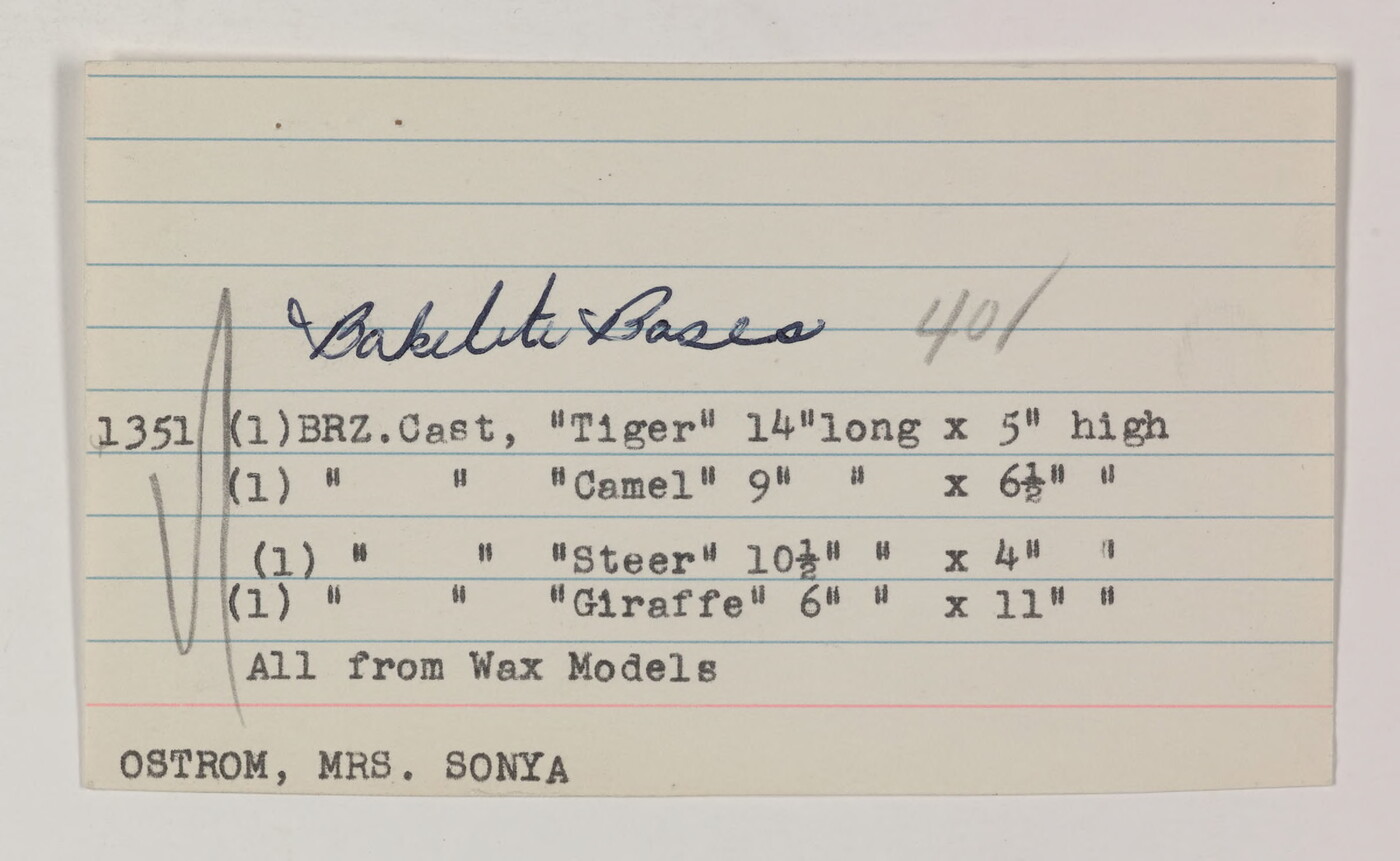 & Bakelite Bases 40/
1351 (1)BRZ.Cast, "Tiger" 14"long x 5" high
(1) " " "Camel" 9" " x 6½" "
(1) " " "Steer" 10½" " x 4" "
(1) " " "Giraffe" 6" " x 11" "
All from Wax Models
OSTROM, MRS. SONYA